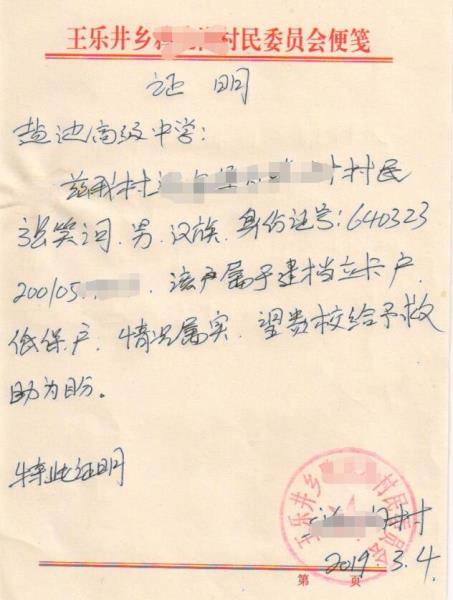 王乐井乡村民委员会便笺
证明
盐池高级中学：
兹我村村民
张笑词、男、汉族、身份证号：640323
200105 该户属于建档立卡户、
低保户、情况属实、望贵校给予救
助为盼。
特此证明
王乐井乡村民委员会
村
2019.3.4
第 页